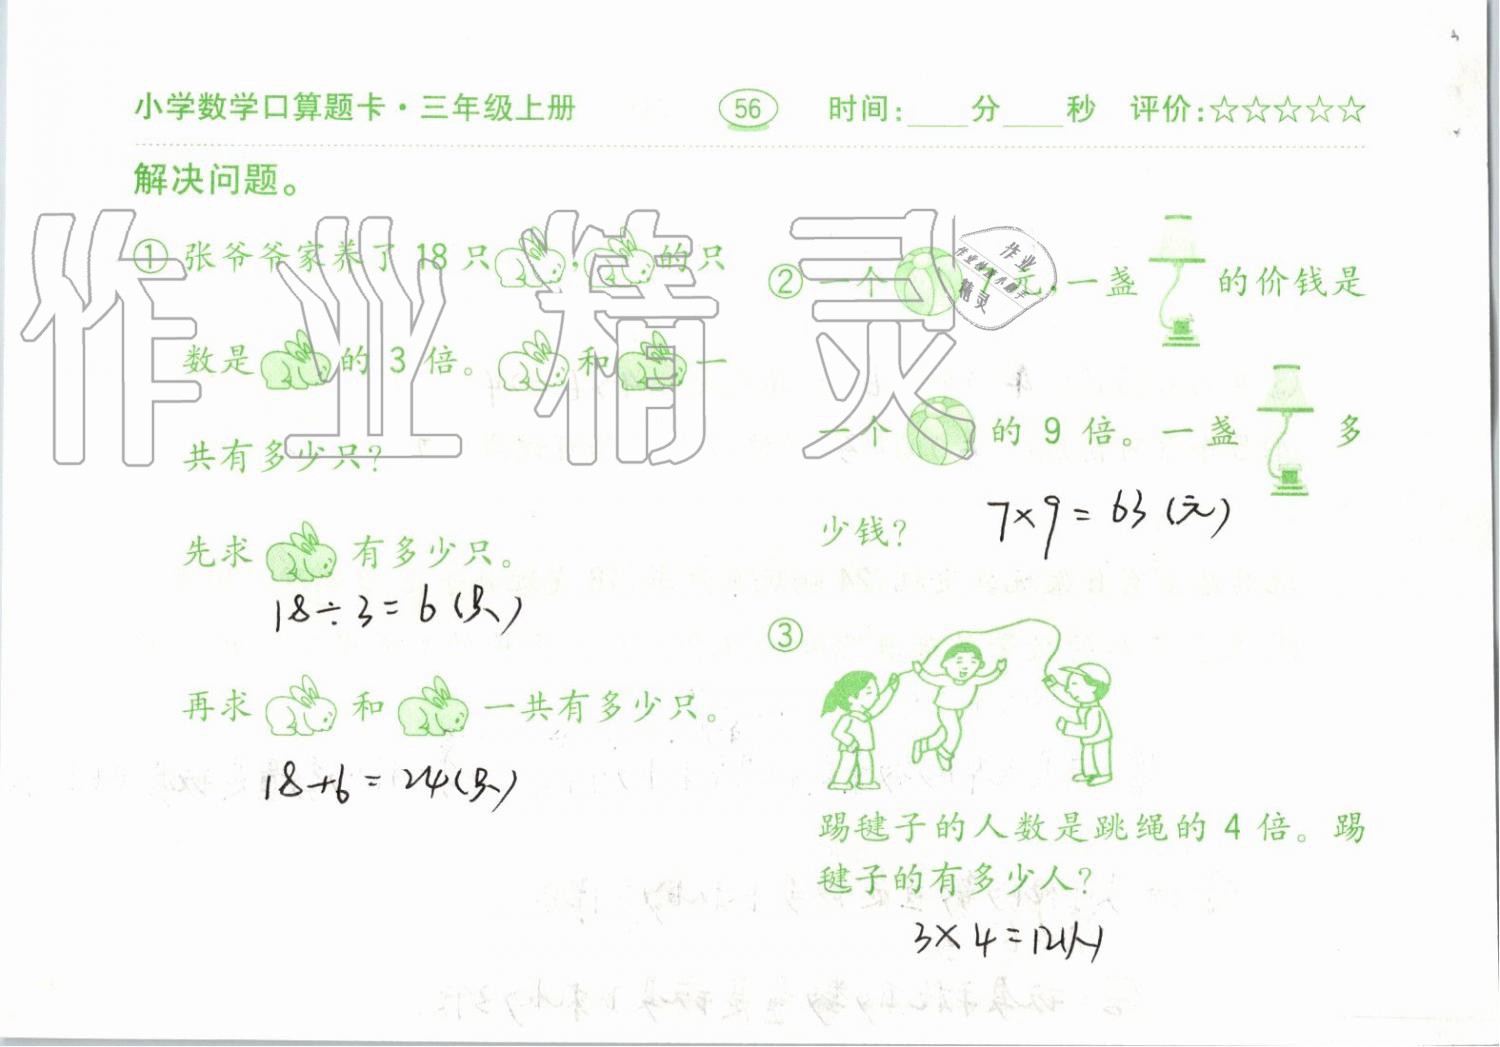 小学数学口算题卡·三年级上册 56 时间:____分____秒 评价:☆☆☆☆☆
解决问题。
① 张爷爷家养了 18 只，的只
数是的 3 倍。和一
共有多少只?
先求有多少只。
18÷3=6(只)
再求和一共有多少只。
18+6=24(只)
② 一个元,一盏的价钱是
一个的 9 倍。一盏多
少钱?
7×9=63(元)
③
踢毽子的人数是跳绳的 4 倍。踢
毽子的有多少人?
3×4=12(人)
作业精灵
作业
作业快速小助手
精灵